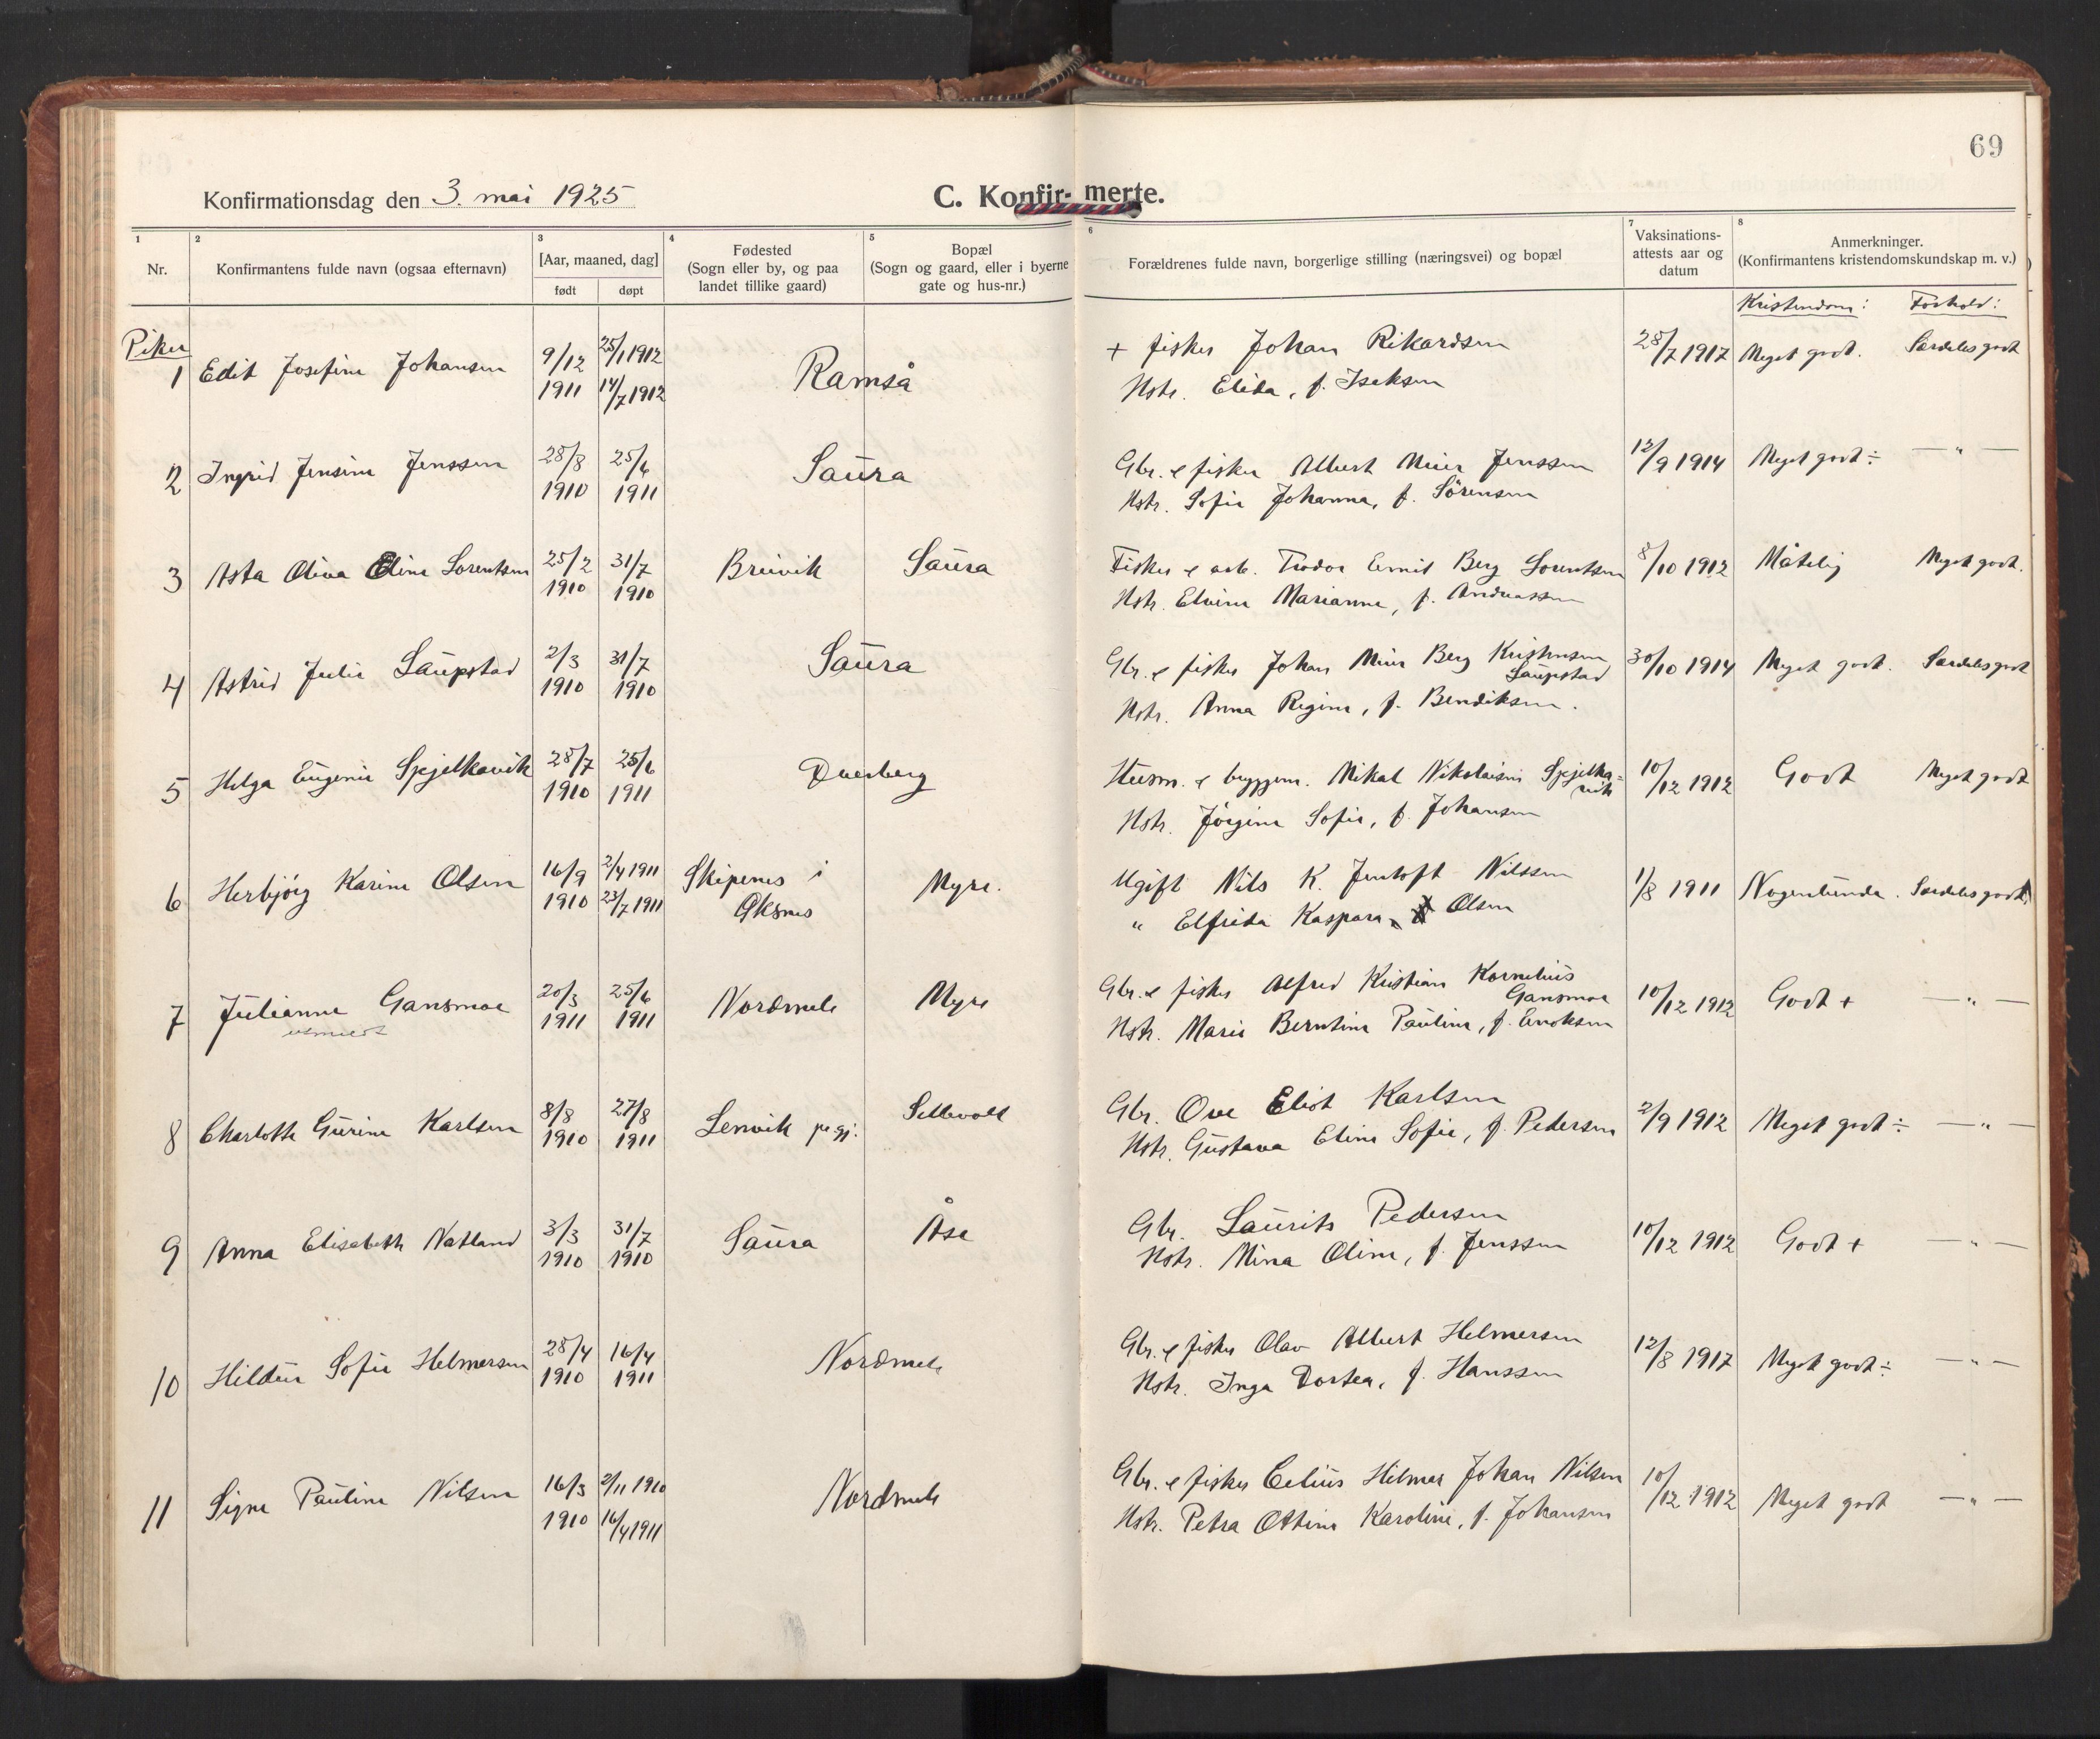 69
Konfirmationsdag den 3. mai 1925
C. Konfir- merte.
1 2 3 4 5 6 7 8
Nr. Konfirmantens fulde navn (ogsaa efternavn) [Aar, maaned, dag] født døpt Fødested (Sogn eller by, og paa landet tillike gaard) Bopæl (Sogn og gaard, eller i byerne gate og hus-nr.) Forældrenes fulde navn, borgerlige stilling (næringsvei) og bopæl Vaksinations-attests aar og datum Anmerkninger. (Konfirmantens kristendomskundskap m. v.)
Kristendom: Forhold:
Piker
1 Edit Josefine Johansen 9/12 1911 25/1 1912 14/7 1912 Ramså + fisker Johan Rikardsen 28/7 1917 Meget godt. Særdeles godt
Hstr. Elida, f. Isaksen
2 Ingrid Jensine Jenssen 28/8 1910 25/6 1911 Saura Gbr. & fisker Albert Meier Jenssen 12/9 1914 Meget godt ÷ — " —
Hstr. Sofie Johanna, f. Sörensen
3 Asta Oliva Eline Lorentsen 25/2 1910 31/7 1910 Breivik Saura Fisker & arb. Trodor Ernit Berg Lorentsen 8/10 1912 Måtelig Meget godt.
Hstr. Elvine Marianne, f. Andreassen
4 Astrid Julie Laupstad 2/3 1910 31/7 1910 Saura Gbr. & fisker Johan Meier Berg Kristensen Laupstad 30/10 1914 Meget godt. Særdeles godt
Hstr. Anna Regine, f. Bendiksen.
5 Helga Eugenie Spjelkavik 28/7 1910 25/6 1911 Dverberg Husm. & byggem. Mikal Nikolaisen Spjelka=vik 10/12 1912 Godt Meget godt
Hstr. Jörgine Sofie, f. Johansen
6 Herbjörg Karine Olsen 16/9 1910 2/4 1911 23/7 1911 Skipenes i Øksnes Myre. Ugift Nils K. Jentoft Nilssen 1/8 1911 Nogenlunde. Særdeles godt.
" Elfrida Kaspara Olsen
7 Julianne Gansmoe 20/3 1911 25/6 1911 Nordmela Myre Gbr. & fisker Alfred Kristian Kornelius Gansmoe 10/12 1912 Godt + — " —
Hstr. Marie Berntine Pauline, f. Enoksen
8 Charlotte Gurine Karlsen 8/8 1910 27/8 1911 Lenvik pgj. Sellevoll Gbr. Ove Eliot Karlsen 2/9 1912 Meget godt ÷ — " —
Hstr. Gustava Eline Sofie, f. Pedersen
9 Anna Elisabeth Natland 3/3 1910 31/7 1910 Saura Åse Gbr. Laurits Pedersen 10/12 1912 Godt + — " —
Hstr. Mina Oline, f. Jenssen
10 Hildur Sofie Helmersen 28/4 1910 16/4 1911 Nordmela Gbr. & fisker Olav Albert Helmersen 12/8 1917 Meget godt ÷ — " —
Hstr. Inga Dortea, f. Hanssen
11 Signe Pauline Nilsen 16/3 1910 2/11 1910 16/4 1911 Nordmela Gbr. & fisker Celius Hilmar Johan Nilsen 10/12 1912 Meget godt — " —
Hstr. Petra Ottine Karoline, f. Johansen